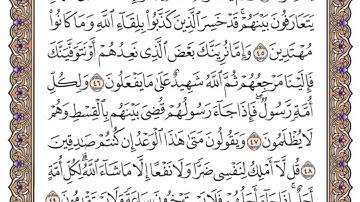 يَتَعَارَفُونَ بَيْنَهُمْ قَدْ خَسِرَ الَّذِينَ كَذَّبُوا بِلِقَاءِ اللَّهِ وَمَا كَانُوا
مُهْتَدِينَ ٤٥ وَإِمَّا نُرِيَنَّكَ بَعْضَ الَّذِي نَعِدُهُمْ أَوْ نَتَوَفَّيَنَّكَ
فَإِلَيْنَا مَرْجِعُهُمْ ثُمَّ اللَّهُ شَهِيدٌ عَلَى مَا يَفْعَلُونَ ٤٦ وَلِكُلِّ
أُمَّةٍ رَّسُولٌ فَإِذَا جَاءَ رَسُولُهُمْ قُضِيَ بَيْنَهُم بِالْقِسْطِ وَهُمْ
لَا يُظْلَمُونَ ٤٧ وَيَقُولُونَ مَتَى هَٰذَا الْوَعْدُ إِن كُنتُمْ صَٰدِقِينَ
٤٨ قُل لَّا أَمْلِكُ لِنَفْسِي ضَرًّا وَلَا نَفْعًا إِلَّا مَا شَاءَ اللَّهُ لِكُلِّ أُمَّةٍ
أَجَلٌ إِذَا جَاءَ أَجَلُهُمْ فَلَا يَسْتَـْٔخِرُونَ سَاعَةً وَلَا يَسْتَقْدِمُونَ ٤٩